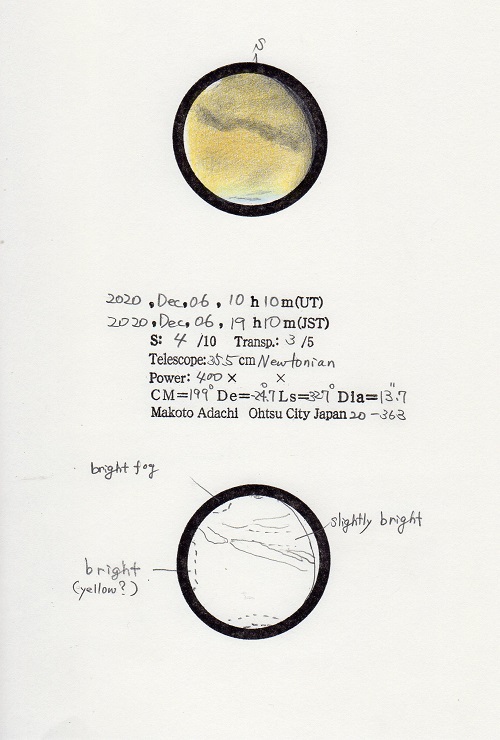 S
2020, Dec, 06, 10 h 10 m (UT)
2020, Dec, 06, 19 h 10 m (JST)
S: 4 /10 Transp.: 3 /5
Telescope: 355 cm Newtonian
Power: 400 × ×
CM=199° De=-24.7° Ls=327° Dia=13.7"
Makoto Adachi Ohtsu City Japan 20-363
bright fog
slightly bright
bright
(yellow?)